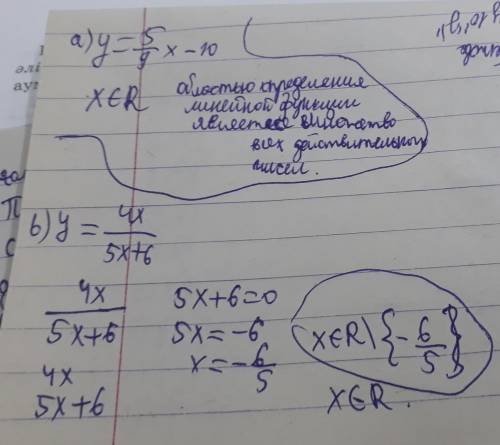 а) y = 5/9 x - 10
x∈R
областью определения
линейной функции
является множество
всех действительных
чисел.
b) y = 4x/(5x+6)
4x/(5x+6)
4x
5x+6
5x+6=0
5x=-6
x=-6/5
x∈R\{-6/5}
x∈R.